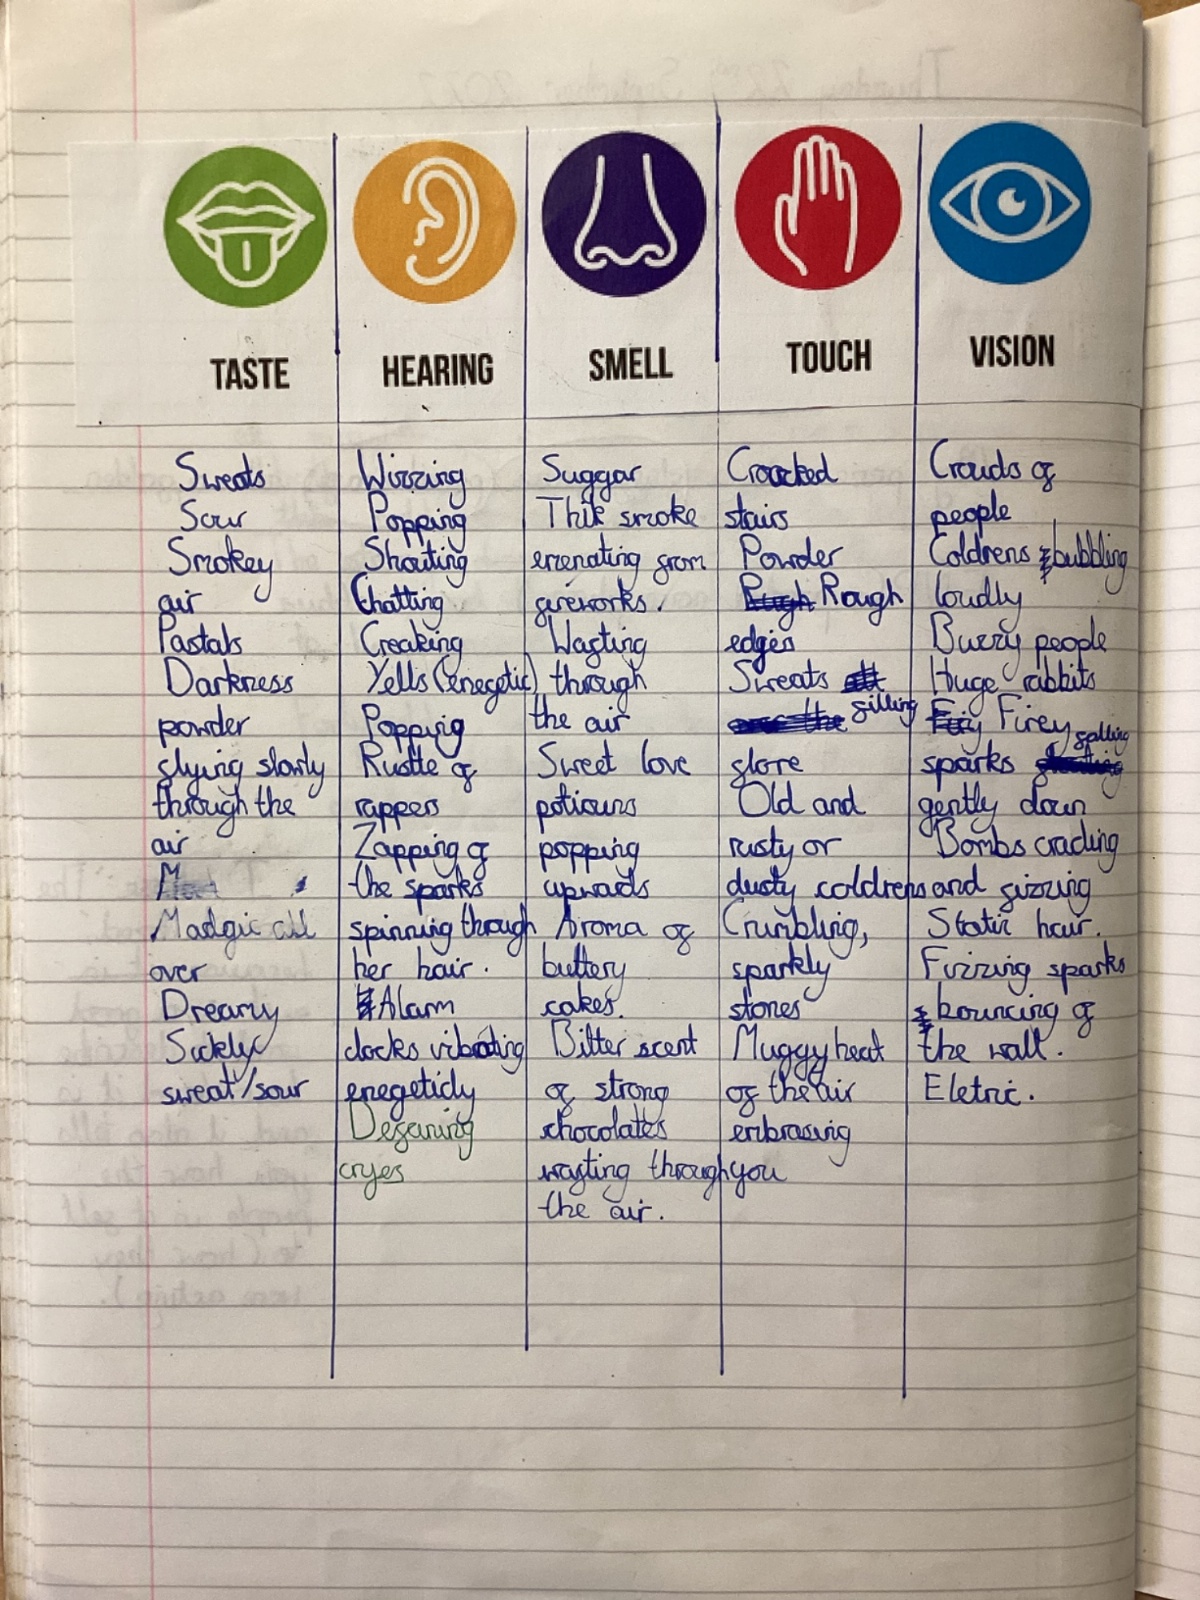 TASTE
Sweats
Sour
Smokey
air
Pastals
Darkness
powder
flying slowly
through the
air
Madgic all
over
Dreamy
Sickly
sweat/sour
HEARING
Wizzing
Popping
Shouting
Chatting
Creaking
Yells (enegetic)
Popping
Rustle of
rappers
Zapping of
the sparks
spinning through
her hair.
Alarm
clocks vibrating
enegeticly
Defening
cryes
SMELL
Suggar
Thik smoke
emenating from
fireworks.
Wafting
through
the air
Sweet love
potiouns
popping
upwads
Aroma of
buttery
cakes.
Bitter scent
of strong
chocolates
wafting through
the air.
TOUCH
Cracked
stairs
Powder
Rough
edges
Sweats
filling
store
Old and
rusty or
dusty coldrens
Crumbling,
sparkly
stones
Muggy heat
of the air
embrasing
you
VISION
Crouds of
people
Coldrens bubbling
loudly
Buzzy people
Huge rabbits
Firey
sparks falling
gently down
Bombs cracling
and fizzing
Static hair.
Fizzing sparks
bouncing of
the wall.
Eletric.